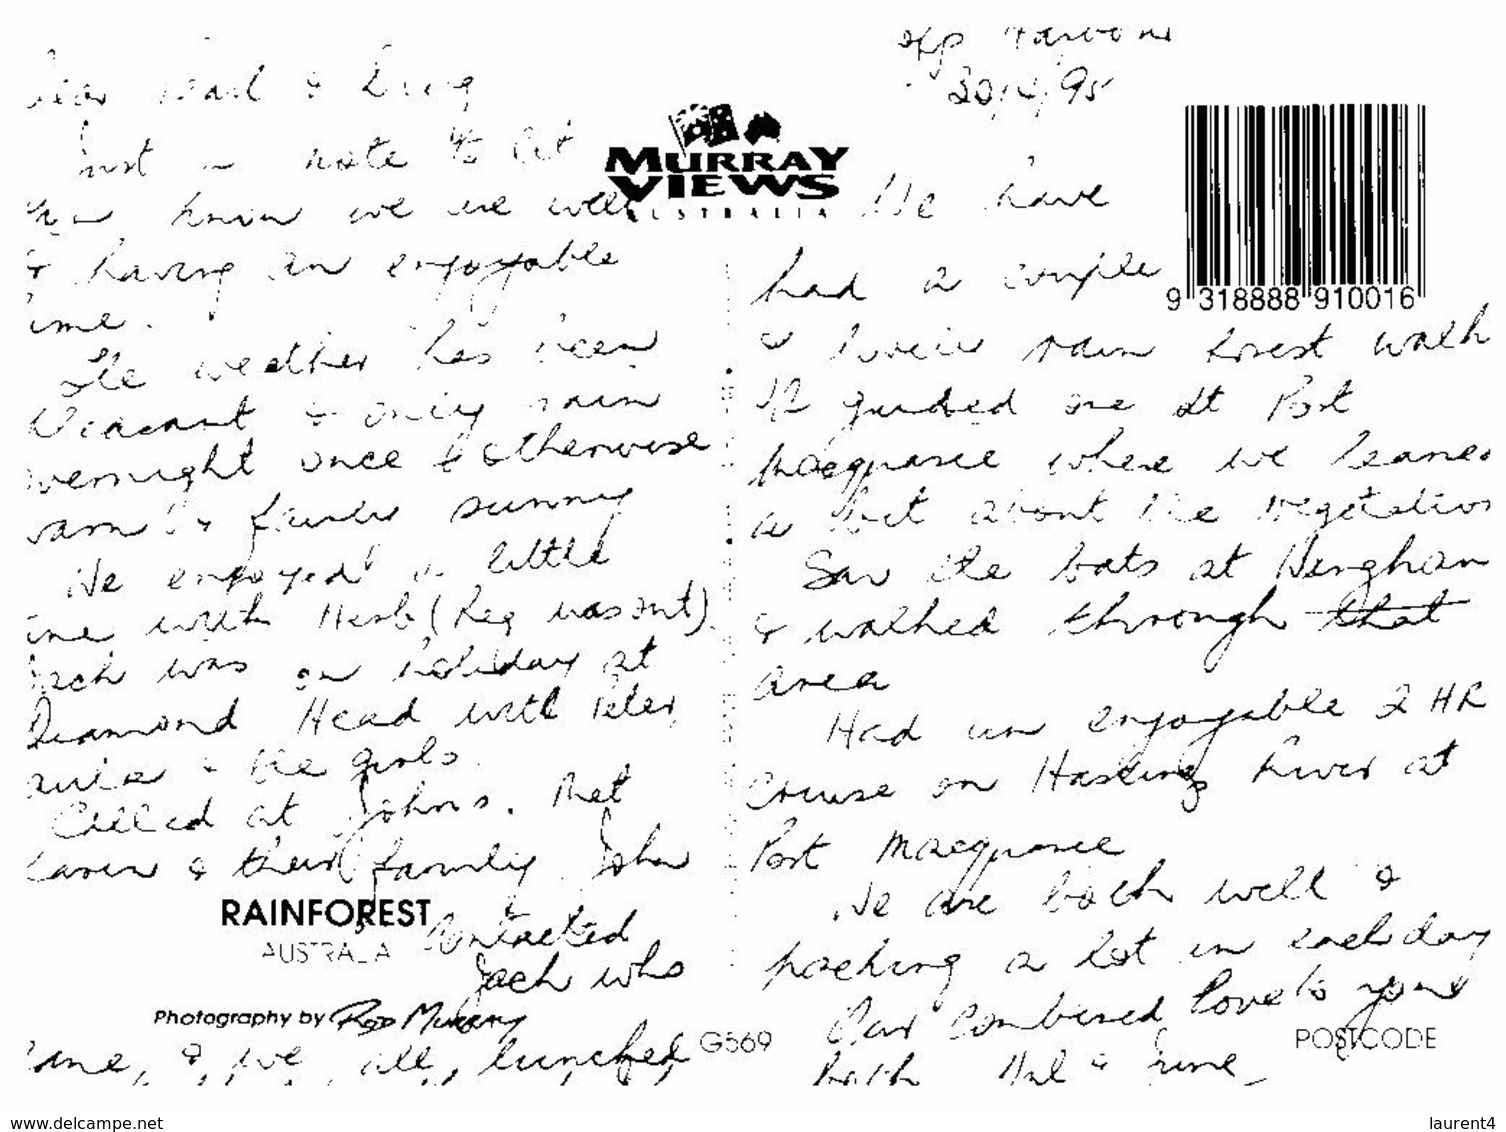 & Doug
Just a note to let
you know we are well
& having an enjoyable
time.
The weather has been
pleasant & only rain
overnight once & otherwise
warm & fairly sunny
We enjoyed a little
time with Herb (Reg was out)
Jack was on holiday at
Diamond Head with Peter
& the girls.
Called at Johns. Met
Karen & their family John
contacted
Jack who
came, & we all lunched
RAINFOREST
AUSTRALIA
Photography by Rod Murray
MURRAY
VIEWS
AUSTRALIA
G569
30/4/95
We have
had a couple
rain forest walk
guided one at Port
Macquarie where we learned
a lot about the vegetation
Saw the bats at Wingham
& walked through that
area
Had an enjoyable 2 HR
Cruise on Hastings River at
Port Macquarie
We are both well &
packing a lot in each day
Our combined love to you
both & June
9 318888 910016
POSTCODE
www.delcampe.net
laurent4